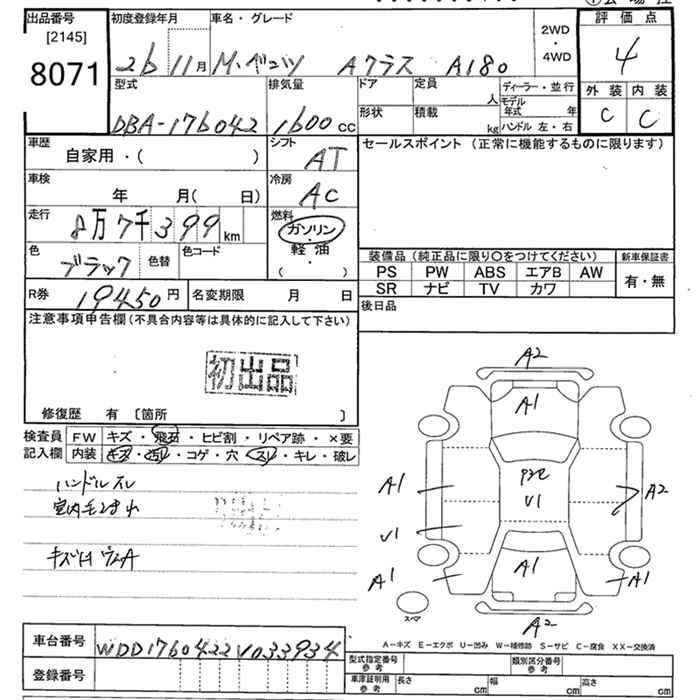 出品番号
[2145]
8071
初度登録年月
26 11月
車名・グレード
M・ベンツ Aクラス A180
2WD
・
4WD
評価点
4
外装 内装
C C
型式
DBA-176042
排気量
1600 cc
ドア
定員
人
形状
積載
kg
ディーラー・並行
モデル年式 年
ハンドル 左・右
車歴
自家用・( )
シフト
AT
セールスポイント (正常に機能するものに限ります)
車検
年 月( 日)
冷房
AC
走行
8万7千399km
燃料
ガソリン
・
軽油
・
( )
色
ブラック
色替
色コード
装備品 (純正品に限り〇をつけてください)
PS PW ABS エアB AW
SR ナビ TV カワ
新車保証書
有・無
R券
19450円
名変期限 月 日
後日品
注意事項申告欄(不具合内容等は具体的に記入して下さい)
初出品
修復歴 有 〔箇所 〕
検査員 FW キズ・飛石・ヒビ割・リペア跡・×要
記入欄 内装 キズ・汚レ・コゲ・穴・スレ・キレ・破レ
ハンドルスレ
A2
A1
A1
U1
A1
U1
A2
A1
A1
A2
スペア
A−キズ E−エクボ U−凹み W−補修跡 S−サビ C−腐食 XX−交換済
車台番号
WDD1760422V033934
登録番号
型式指定番号 参考
類別区分番号 参考
車庫証明用 参考
長さ cm 幅 cm 高さ cm